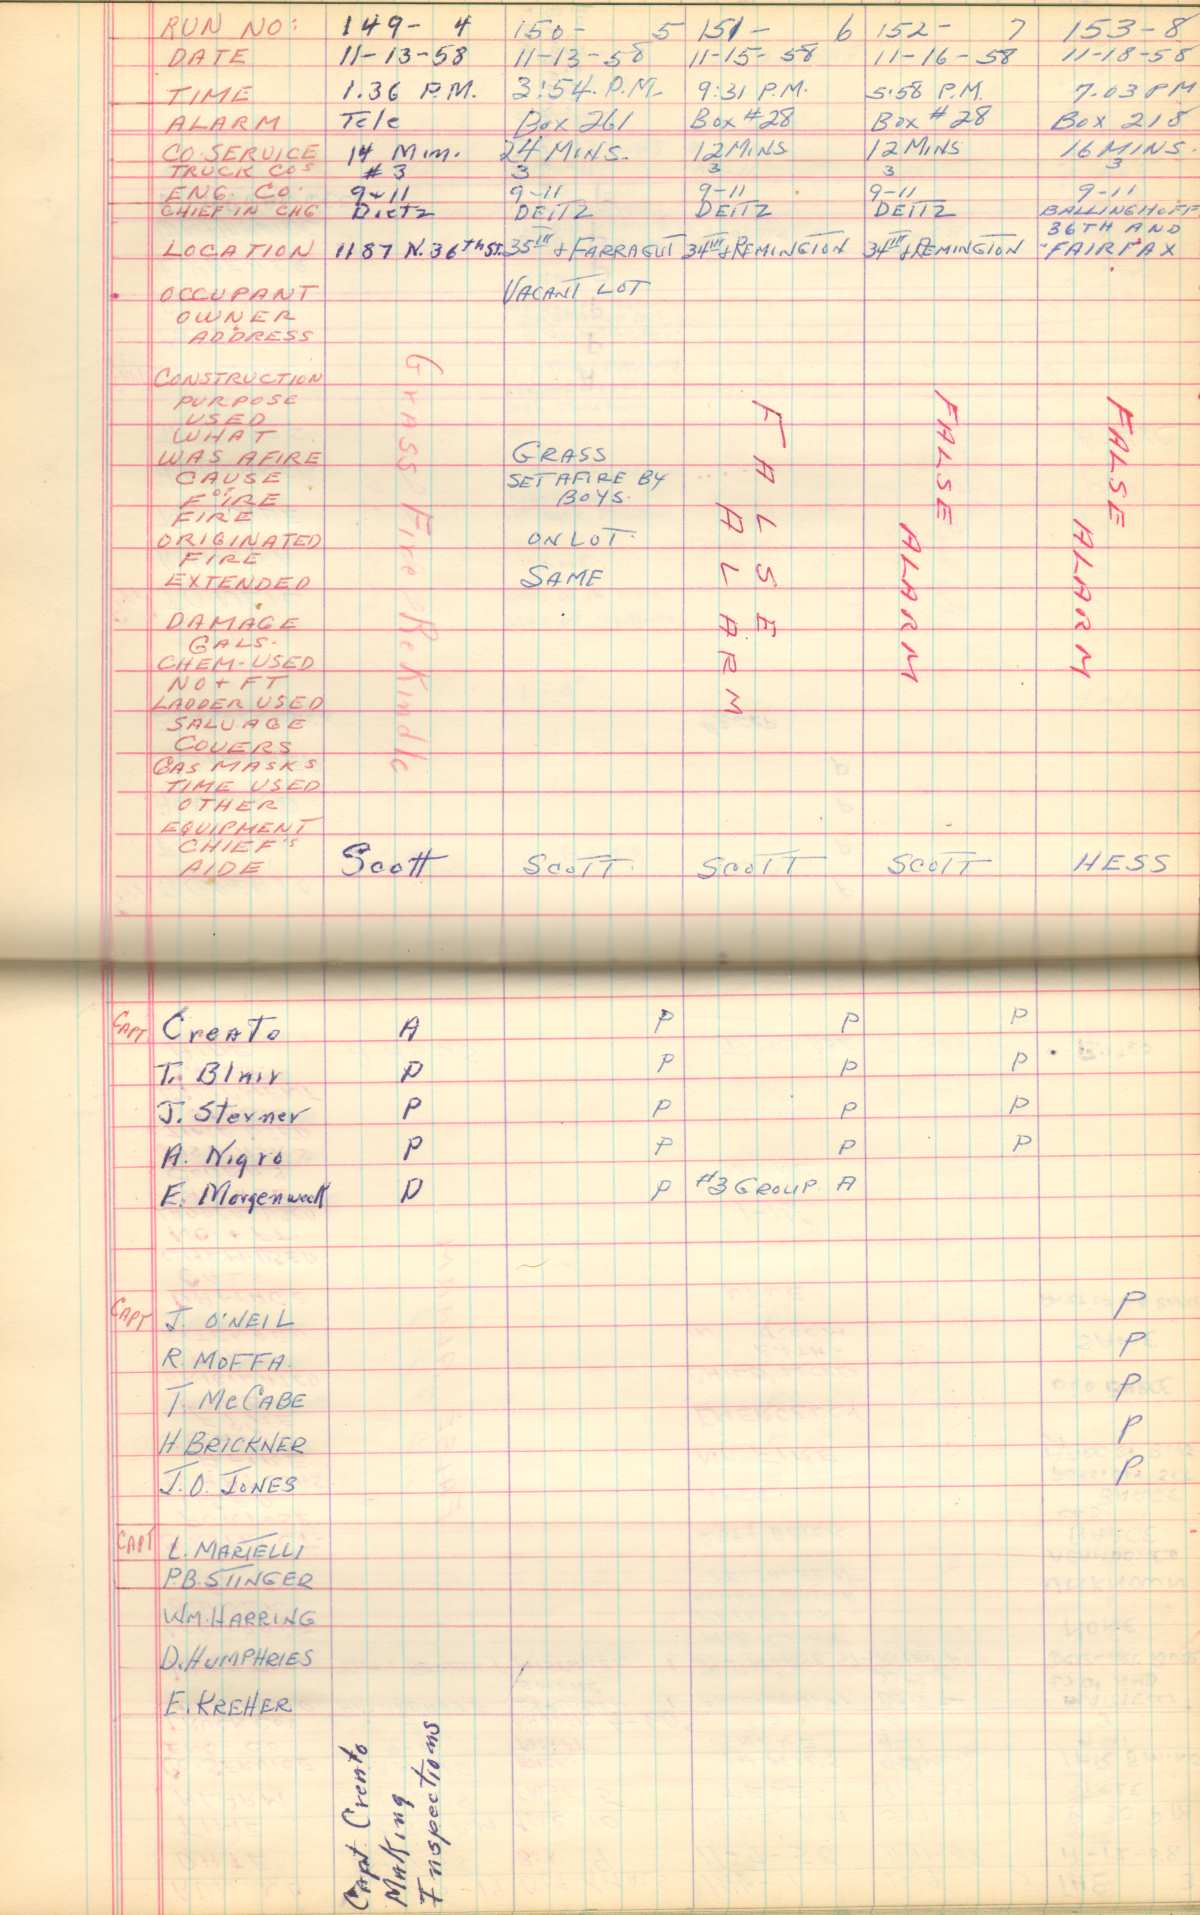 RUN NO: 149- 4 150- 5 151- 6 152- 7 153-8
DATE 11-13-58 11-13-58 11-15-58 11-16-58 11-18-58
TIME 1.36 P.M. 3:54.P.M. 9:31 P.M. 5:58 P.M. 7.03 PM
ALARM Tele Box 261 Box #28 Box #28 Box 218
CO.SERVICE 14 Min. 24 MINS. 12 MINS 12 MINS 16 MINS.
TRUCK CO'S #3 3 3 3 3
ENG. CO. 9-11 9-11 9-11 9-11 9-11
CHIEF IN CHG Dietz DEITZ DEITZ DEITZ BALLINGHOFF
LOCATION 1187 N. 36th St. 35TH & FARRAGUT 34TH & REMINGTON 34TH & REMINGTON 36TH AND FAIRFAX
OCCUPANT VACANT LOT
OWNER
ADDRESS
CONSTRUCTION
PURPOSE
USED
WHAT
WAS AFIRE GRASS
CAUSE SET AFIRE BY
OF FIRE BOYS.
FIRE
ORIGINATED ON LOT.
FIRE
EXTENDED SAME
DAMAGE
GALS.
CHEM-USED
NO + FT
LADDER USED
SALVAGE
COVERS
GAS MASKS
TIME USED
OTHER
EQUIPMENT
CHIEF'S
AIDE Scott SCOTT. SCOTT SCOTT HESS
Grass Fire Rekindle
FALSE
ALARM
FALSE
ALARM
FALSE
ALARM
CAPT Creato A P P P
T. Blair P P P P
J. Sterner P P P P
A. Nigro P P P P
E. Morgenweck P P #3 GROUP A
CAPT J. O'NEIL P
R. MOFFA. P
T. McCABE P
H BRICKNER P
J.D. JONES P
CAPT L. MARTELLI
P.B. STINGER
WM. HARRING
D. HUMPHRIES
E. KREHER
Capt. Creato
Making
Inspections